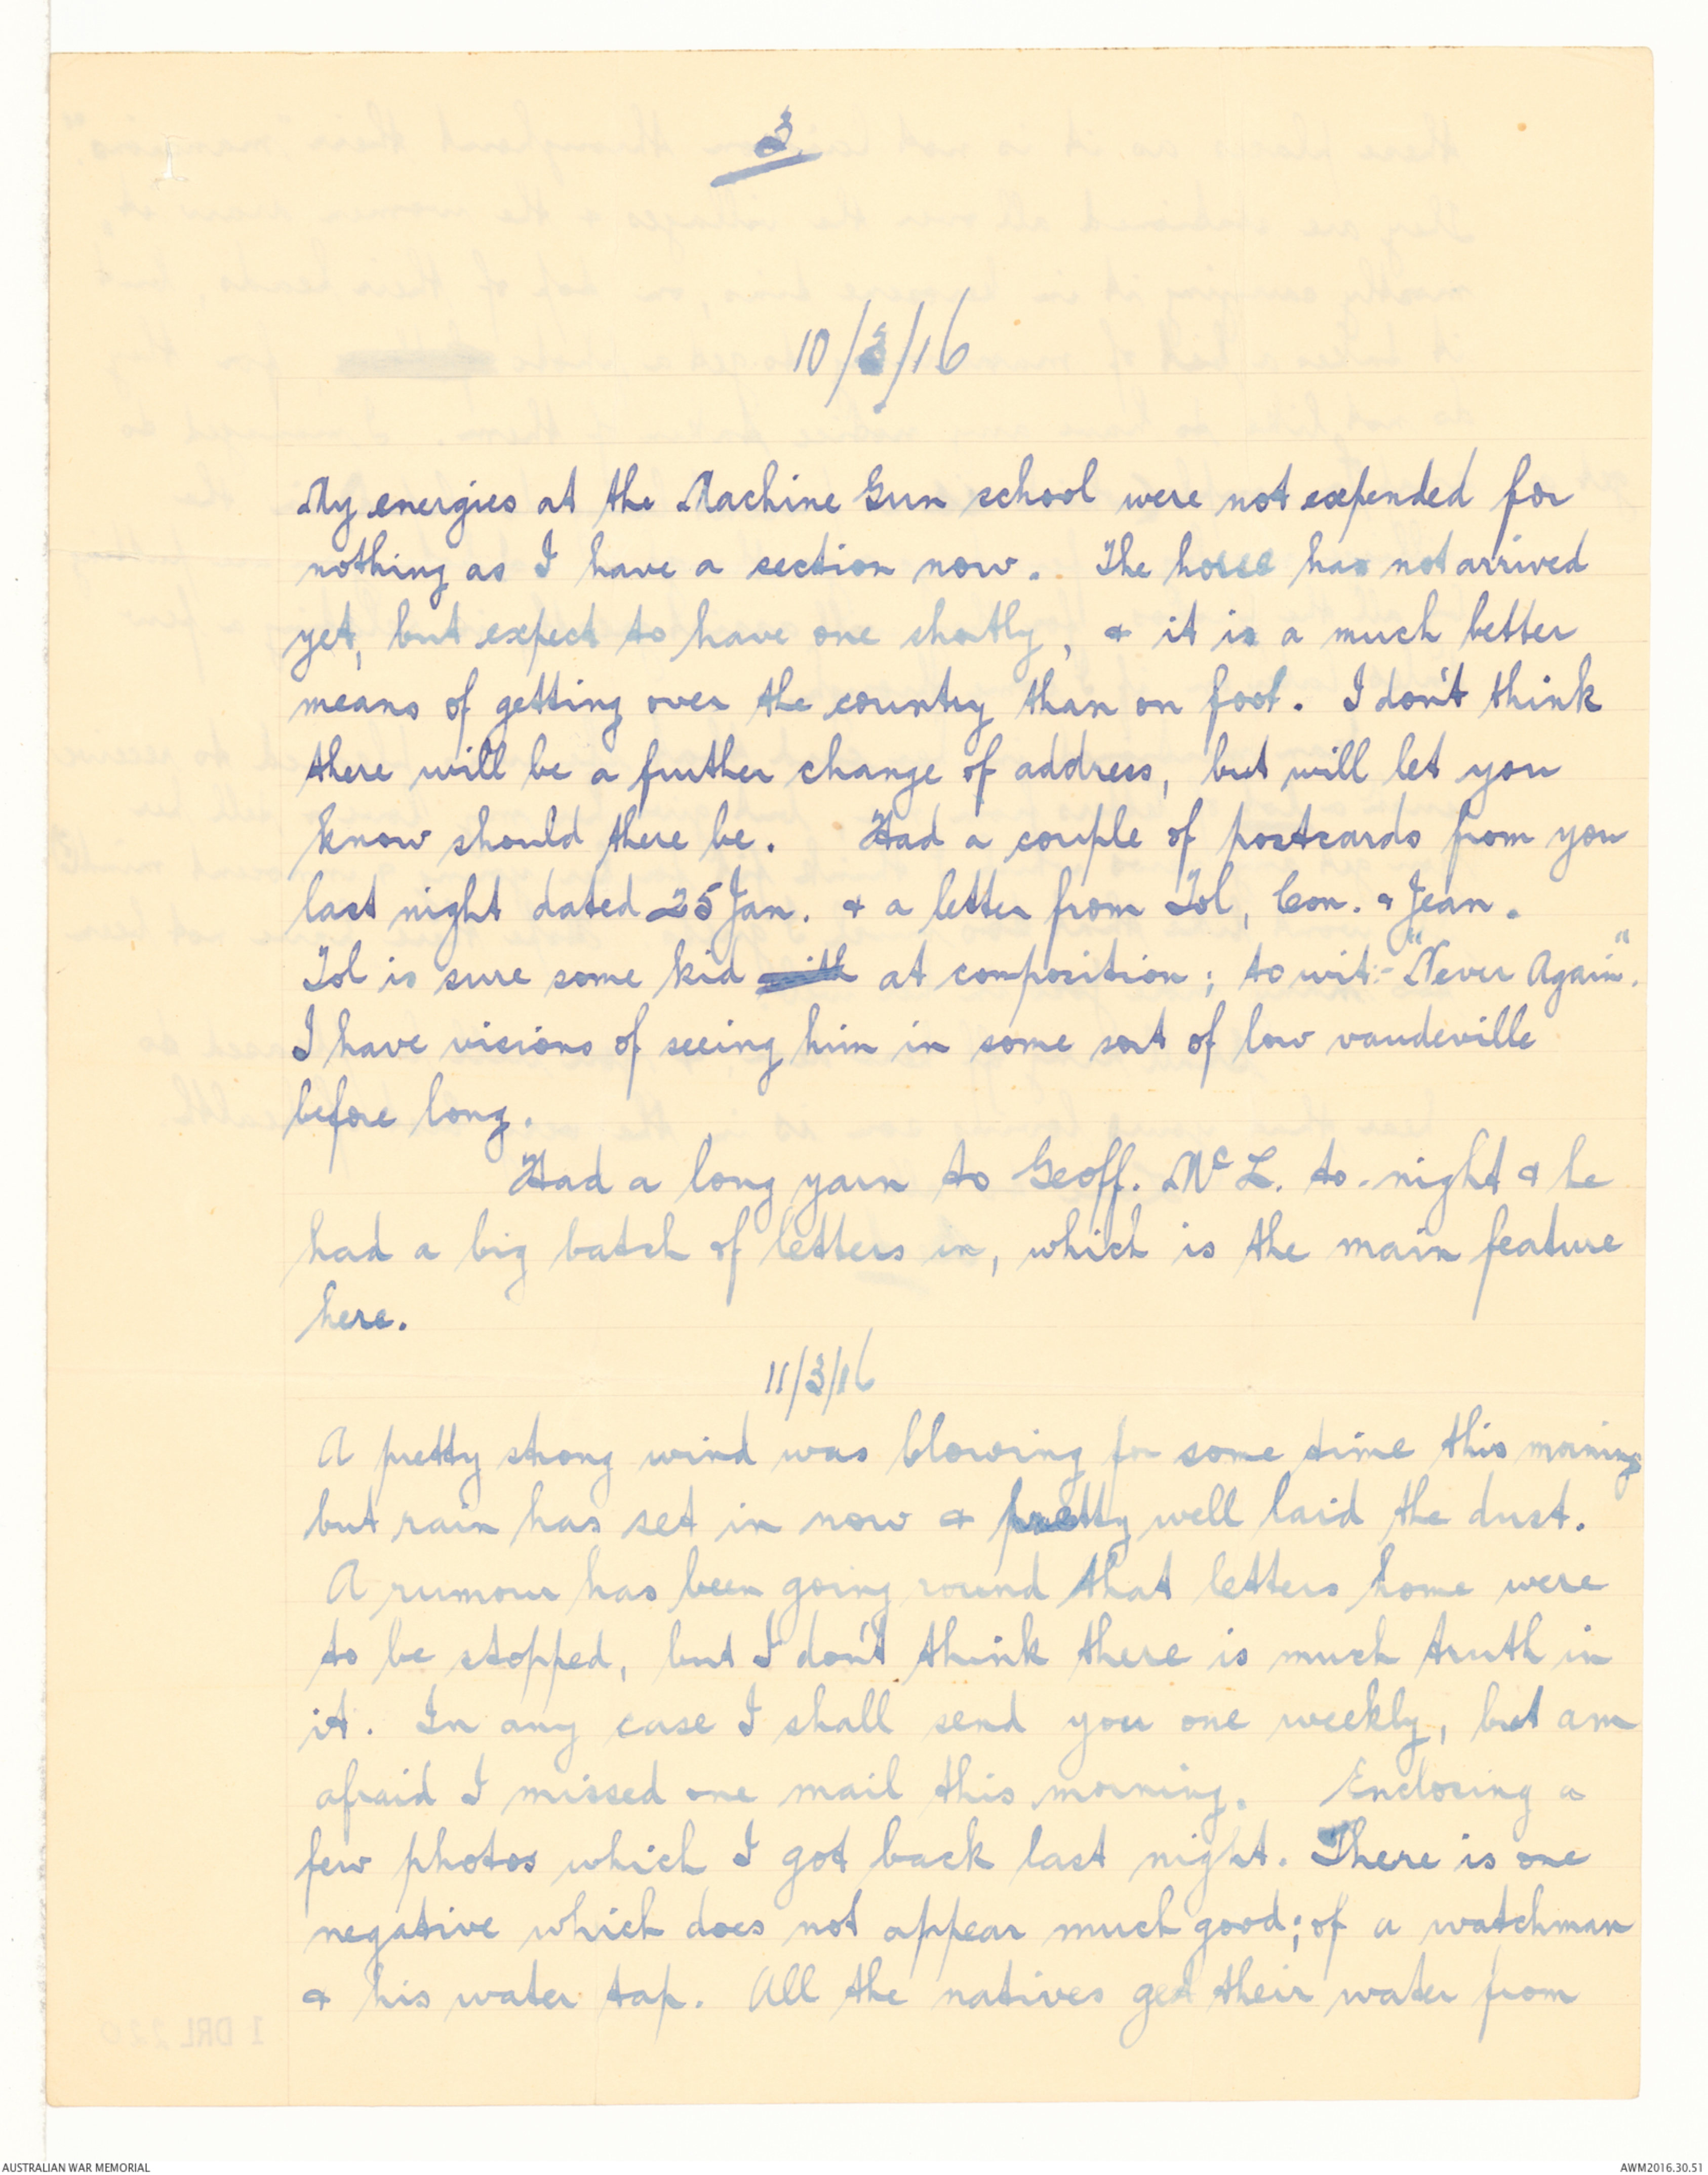 3
10/3/16
My energies at the Machine Gun school were not expended for
nothing as I have a section now. The horse has not arrived
yet, but expect to have one shortly, & it is a much better
means of getting over the country than on foot. I don't think
there will be a further change of address, but will let you
know should there be. Had a couple of postcards from you
last night dated 25 Jan. & a letter from Tol, Con. & Jean.
Tol is sure some kid at composition; to wit:- "Never Again".
I have visions of seeing him in some sort of low vaudeville
before long.
Had a long yarn to Geoff. McL. to-night & he
had a big batch of letters in, which is the main feature
here.
11/3/16
A pretty strong wind was blowing for some time this morning
but rain has set in now & pretty well laid the dust.
A rumour has been going round that letters home were
to be stopped, but I don't think there is much truth in
it. In any case I shall send you one weekly, but am
afraid I missed one mail this morning. Enclosing a
few photos which I got back last night. There is one
negative which does not appear much good; of a watchman
& his water tap. All the natives get their water from
AUSTRALIAN WAR MEMORIAL
AWM2016.30.51